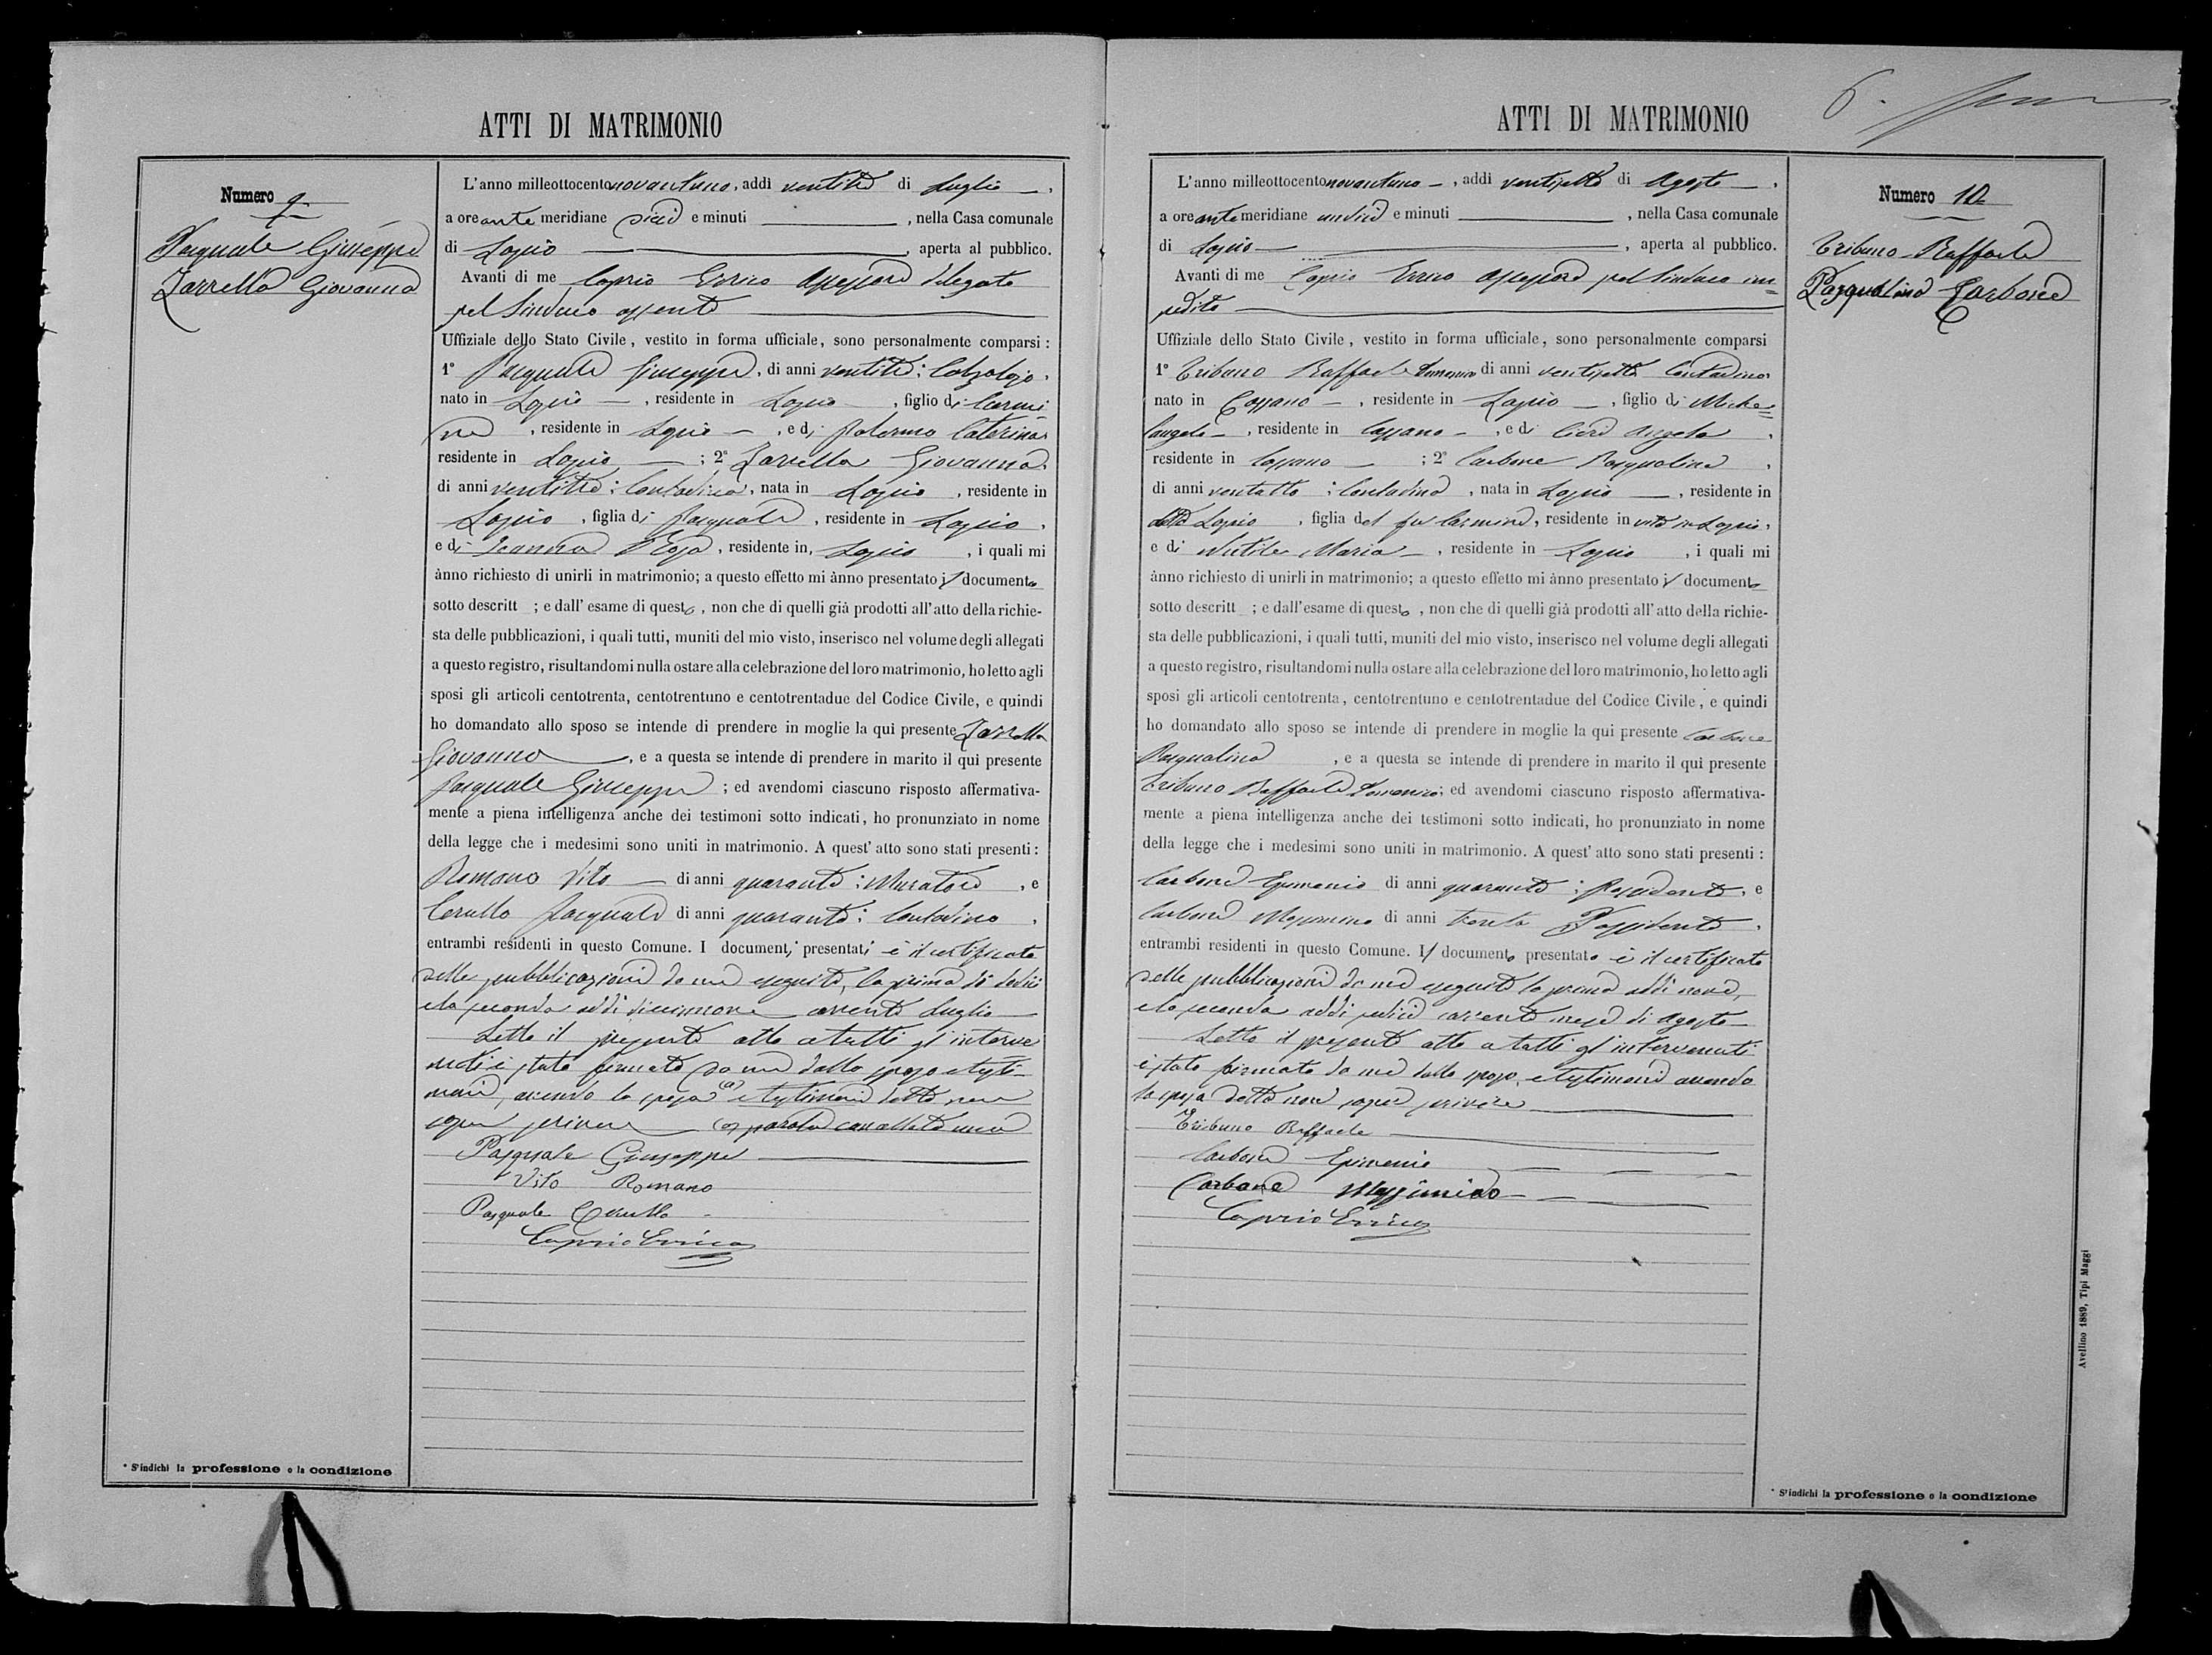 ATTI DI MATRIMONIO
Numero 9
Pasquale Giuseppe
Zarrella Giovanna
L'anno milleottocentonovantuno, addì ventitré di Luglio,
a ore ante meridiane dieci e minuti , nella Casa comunale
di Lapio , aperta al pubblico.
Avanti di me Caprio Errico Assessore delegato
pel Sindaco assente
Uffiziale dello Stato Civile, vestito in forma ufficiale, sono personalmente comparsi:
1° Pasquale Giuseppe, di anni ventitré; Calzolajo,
nato in Lapio, residente in Lapio, figlio di Carmi
ne, residente in Lapio, e di Palermo Caterina
residente in Lapio; 2° Zarrella Giovanna,
di anni ventitré; Contadina, nata in Lapio, residente in
Lapio, figlia di Pasquale, residente in Lapio,
e di, residente in, Lapio, i quali mi
ànno richiesto di unirli in matrimonio; a questo effetto mi ànno presentato il documento
sotto descritt ; e dall'esame di questo, non che di quelli già prodotti all'atto della richie-
sta delle pubblicazioni, i quali tutti, muniti del mio visto, inserisco nel volume degli allegati
a questo registro, risultandomi nulla ostare alla celebrazione del loro matrimonio, ho letto agli
sposi gli articoli centotrenta, centotrentuno e centotrentadue del Codice Civile, e quindi
ho domandato allo sposo se intende di prendere in moglie la qui presente Zarrella
Giovanna, e a questa se intende di prendere in marito il qui presente
Pasquale Giuseppe; ed avendomi ciascuno risposto affermativa-
mente a piena intelligenza anche dei testimoni sotto indicati, ho pronunziato in nome
della legge che i medesimi sono uniti in matrimonio. A quest'atto sono stati presenti:
Romano Vito di anni quaranta; Muratore, e
Cerullo Pasquale di anni quaranta; Contadino,
entrambi residenti in questo Comune. I documenti presentati è il certificato
delle pubblicazioni da me eseguite, la prima dì dodici
e la seconda addì diciannove corrente Luglio
Letto il presente atto a tutti gl'interve
nuti è stato firmato da me dallo sposo e testi-
moni, avendo la sposa (a) e testimoni detto non
saper scrivere (a) parole cancellate
Pasquale Giuseppe
Vito Romano
Pasquale Cerullo
Caprio Errico
* S'indichi la professione o la condizione
6.
ATTI DI MATRIMONIO
Numero 10
Tribuno Raffaele
Pasqualina Carbone
L'anno milleottocentonovantuno, addì ventisette di Agosto,
a ore ante meridiane undici e minuti , nella Casa comunale
di Lapio , aperta al pubblico.
Avanti di me Caprio Errico Assessore pel Sindaco im=
pedito
Uffiziale dello Stato Civile, vestito in forma ufficiale, sono personalmente comparsi
1° Tribuno Raffaele Domenico di anni ventisette Contadino
nato in Cassano, residente in Lapio, figlio di Miche=
langelo, residente in Cassano, e di Angela,
residente in Cassano; 2° Carbone Pasqualina,
di anni ventotto; Contadina, nata in Lapio, residente in
detto Lapio, figlia del fu Carmine, residente in vita in Lapio,
e di Nutile Maria, residente in Lapio, i quali mi
ànno richiesto di unirli in matrimonio; a questo effetto mi ànno presentato il documento
sotto descritt ; e dall'esame di questo, non che di quelli già prodotti all'atto della richie-
sta delle pubblicazioni, i quali tutti, muniti del mio visto, inserisco nel volume degli allegati
a questo registro, risultandomi nulla ostare alla celebrazione del loro matrimonio, ho letto agli
sposi gli articoli centotrenta, centotrentuno e centotrentadue del Codice Civile, e quindi
ho domandato allo sposo se intende di prendere in moglie la qui presente Carbone
Pasqualina, e a questa se intende di prendere in marito il qui presente
Tribuno Raffaele Domenico; ed avendomi ciascuno risposto affermativa-
mente a piena intelligenza anche dei testimoni sotto indicati, ho pronunziato in nome
della legge che i medesimi sono uniti in matrimonio. A quest'atto sono stati presenti:
Carbone Epimenio di anni quaranta; Possidente, e
Carbone Messimino di anni trenta Possidente,
entrambi residenti in questo Comune. Il documento presentato è il certificato
delle pubblicazioni da me eseguite la prima addì nove,
e la seconda addì sedici corrente mese di Agosto
Letto il presente atto a tutti gl'intervenuti
è stato firmato da me dallo sposo, e testimoni avendo
la sposa detto non saper scrivere
Tribuno Raffaele
Carbone Epimenio
Carbone Messimino
Caprio Errico
* S'indichi la professione o la condizione
Avellino 1889, Tipi Maggi